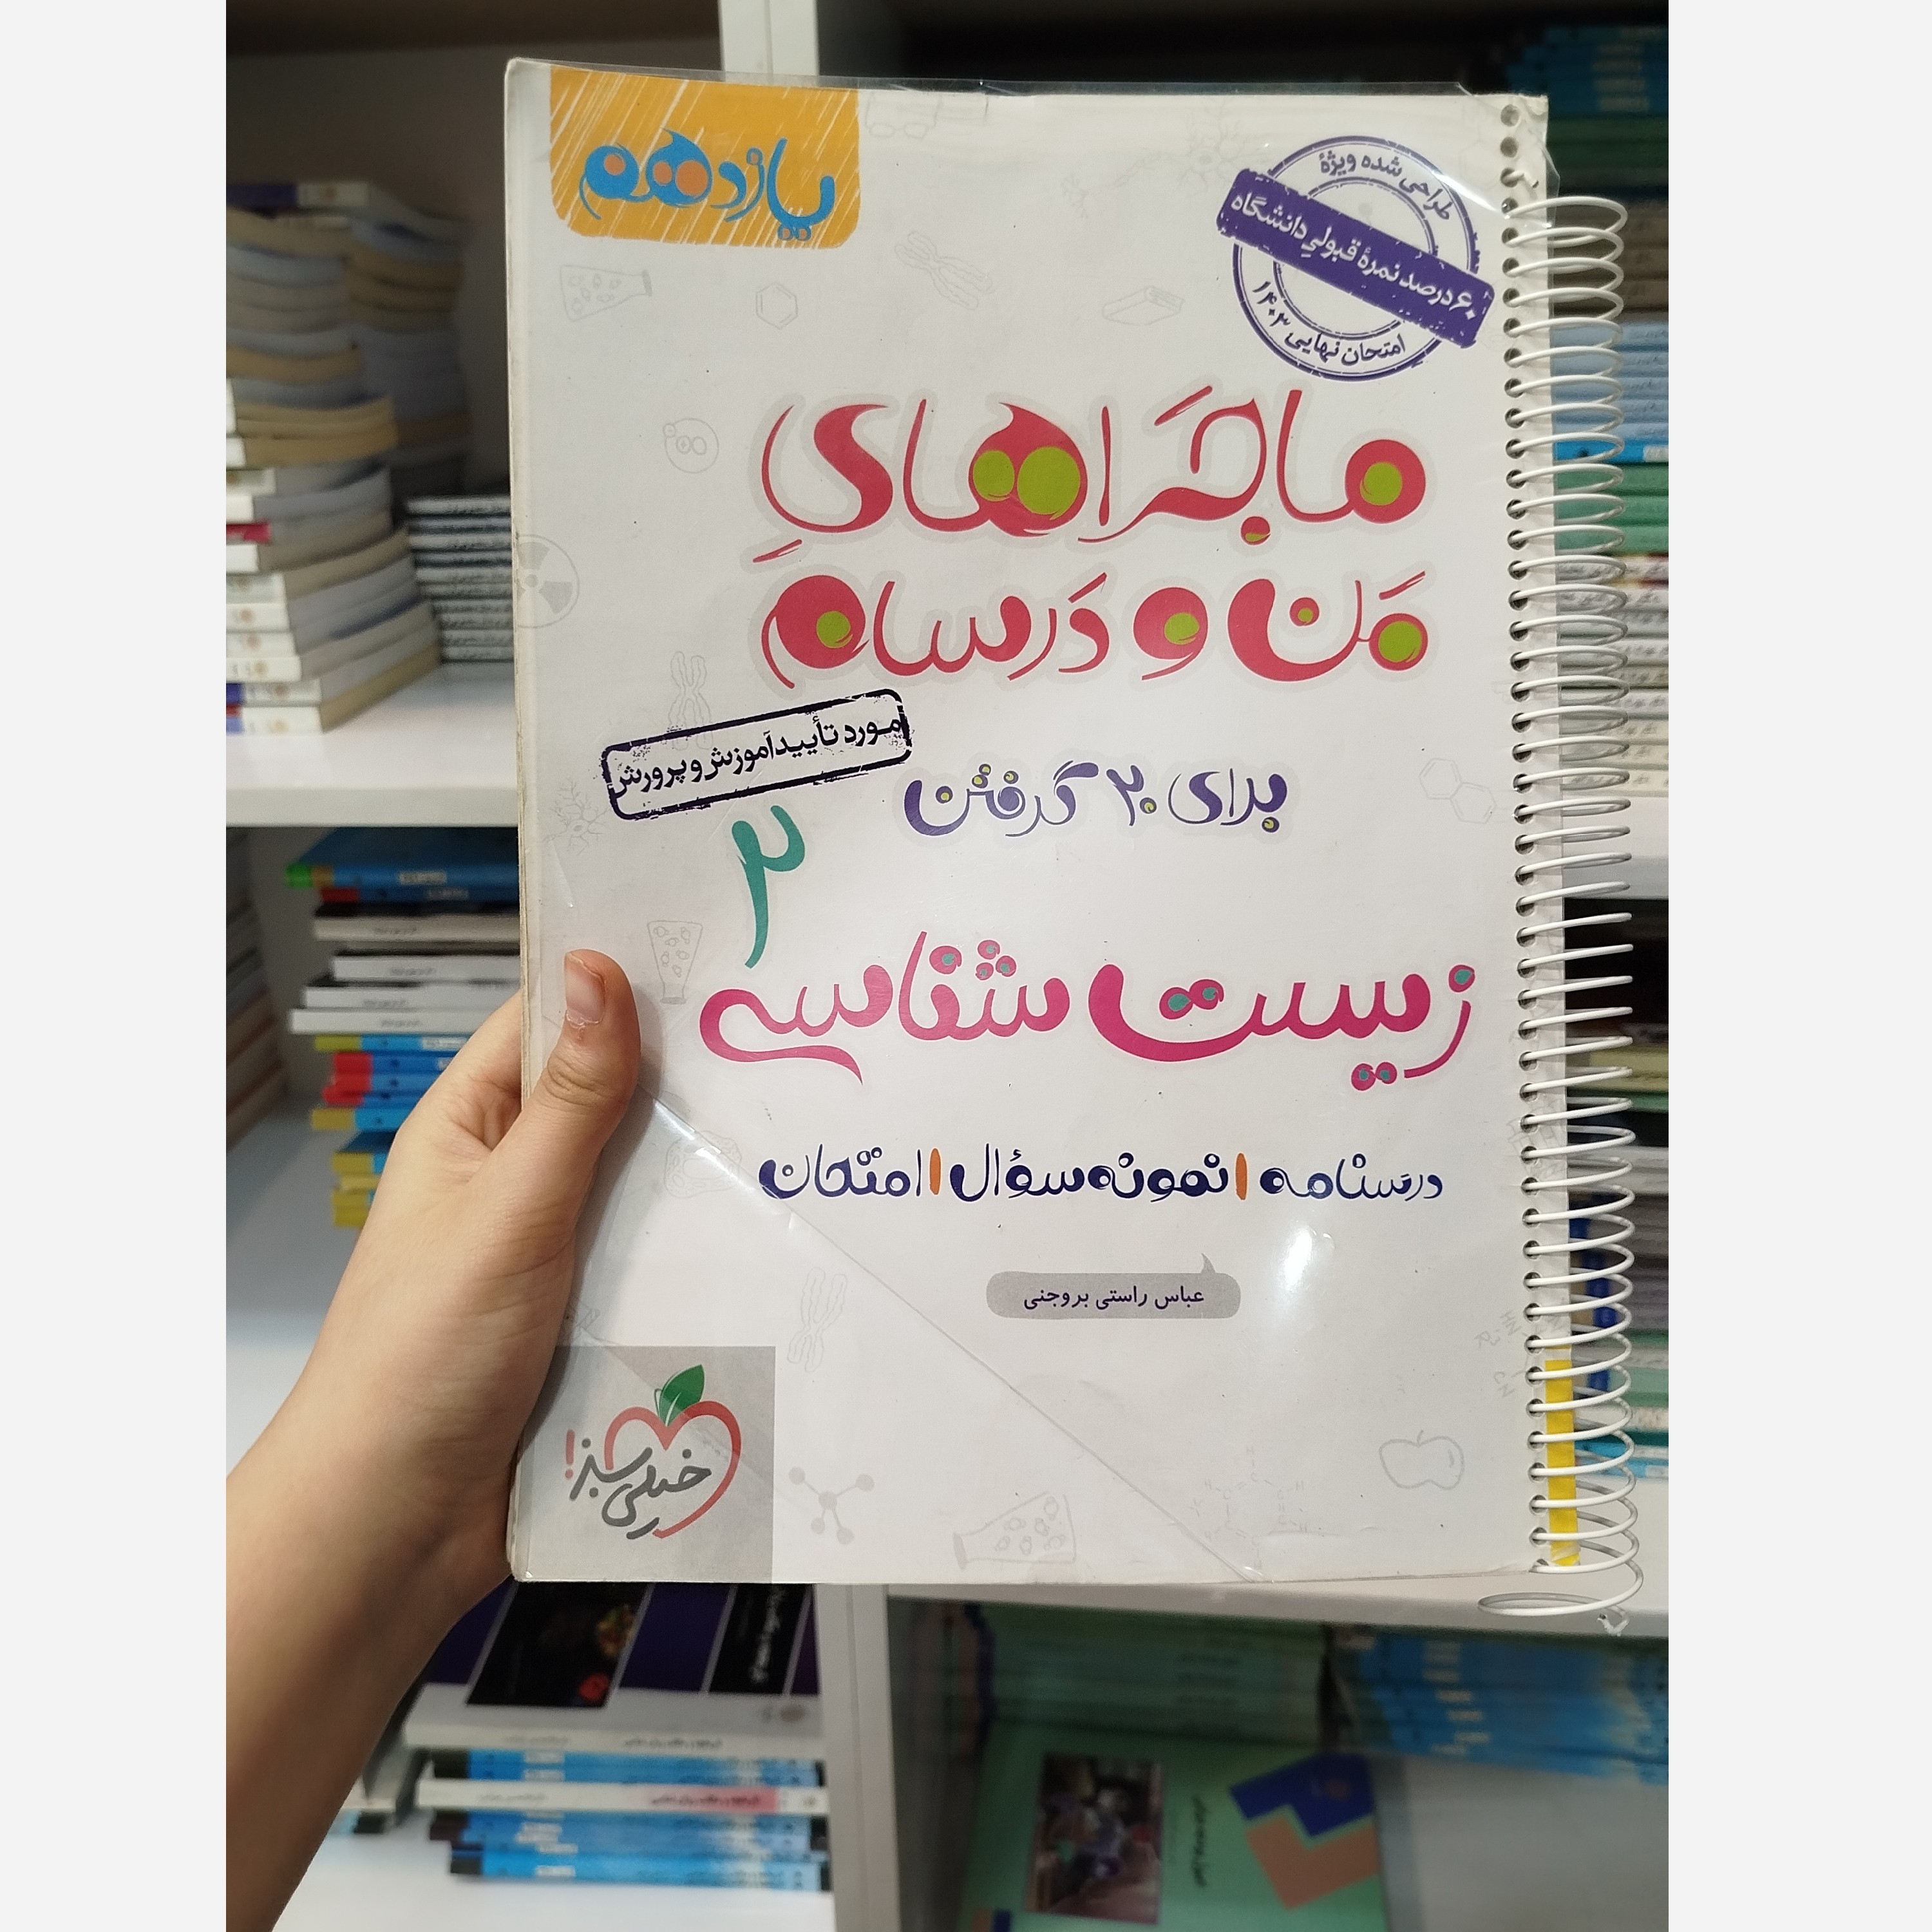 یازدهم
طراحی شده ویژهٔ
۶۰ درصد نمرهٔ قبولی دانشگاه
امتحان نهایی ۱۴۰۳
ماجَراهایِ
مَن و دَرسام
مورد تأیید آموزش و پرورش
برای ۲۰ گرفتن
زیست شناسی ۲
درسنامه | نمونه سؤال | امتحان
عباس راستی بروجنی
خیلی سبز!